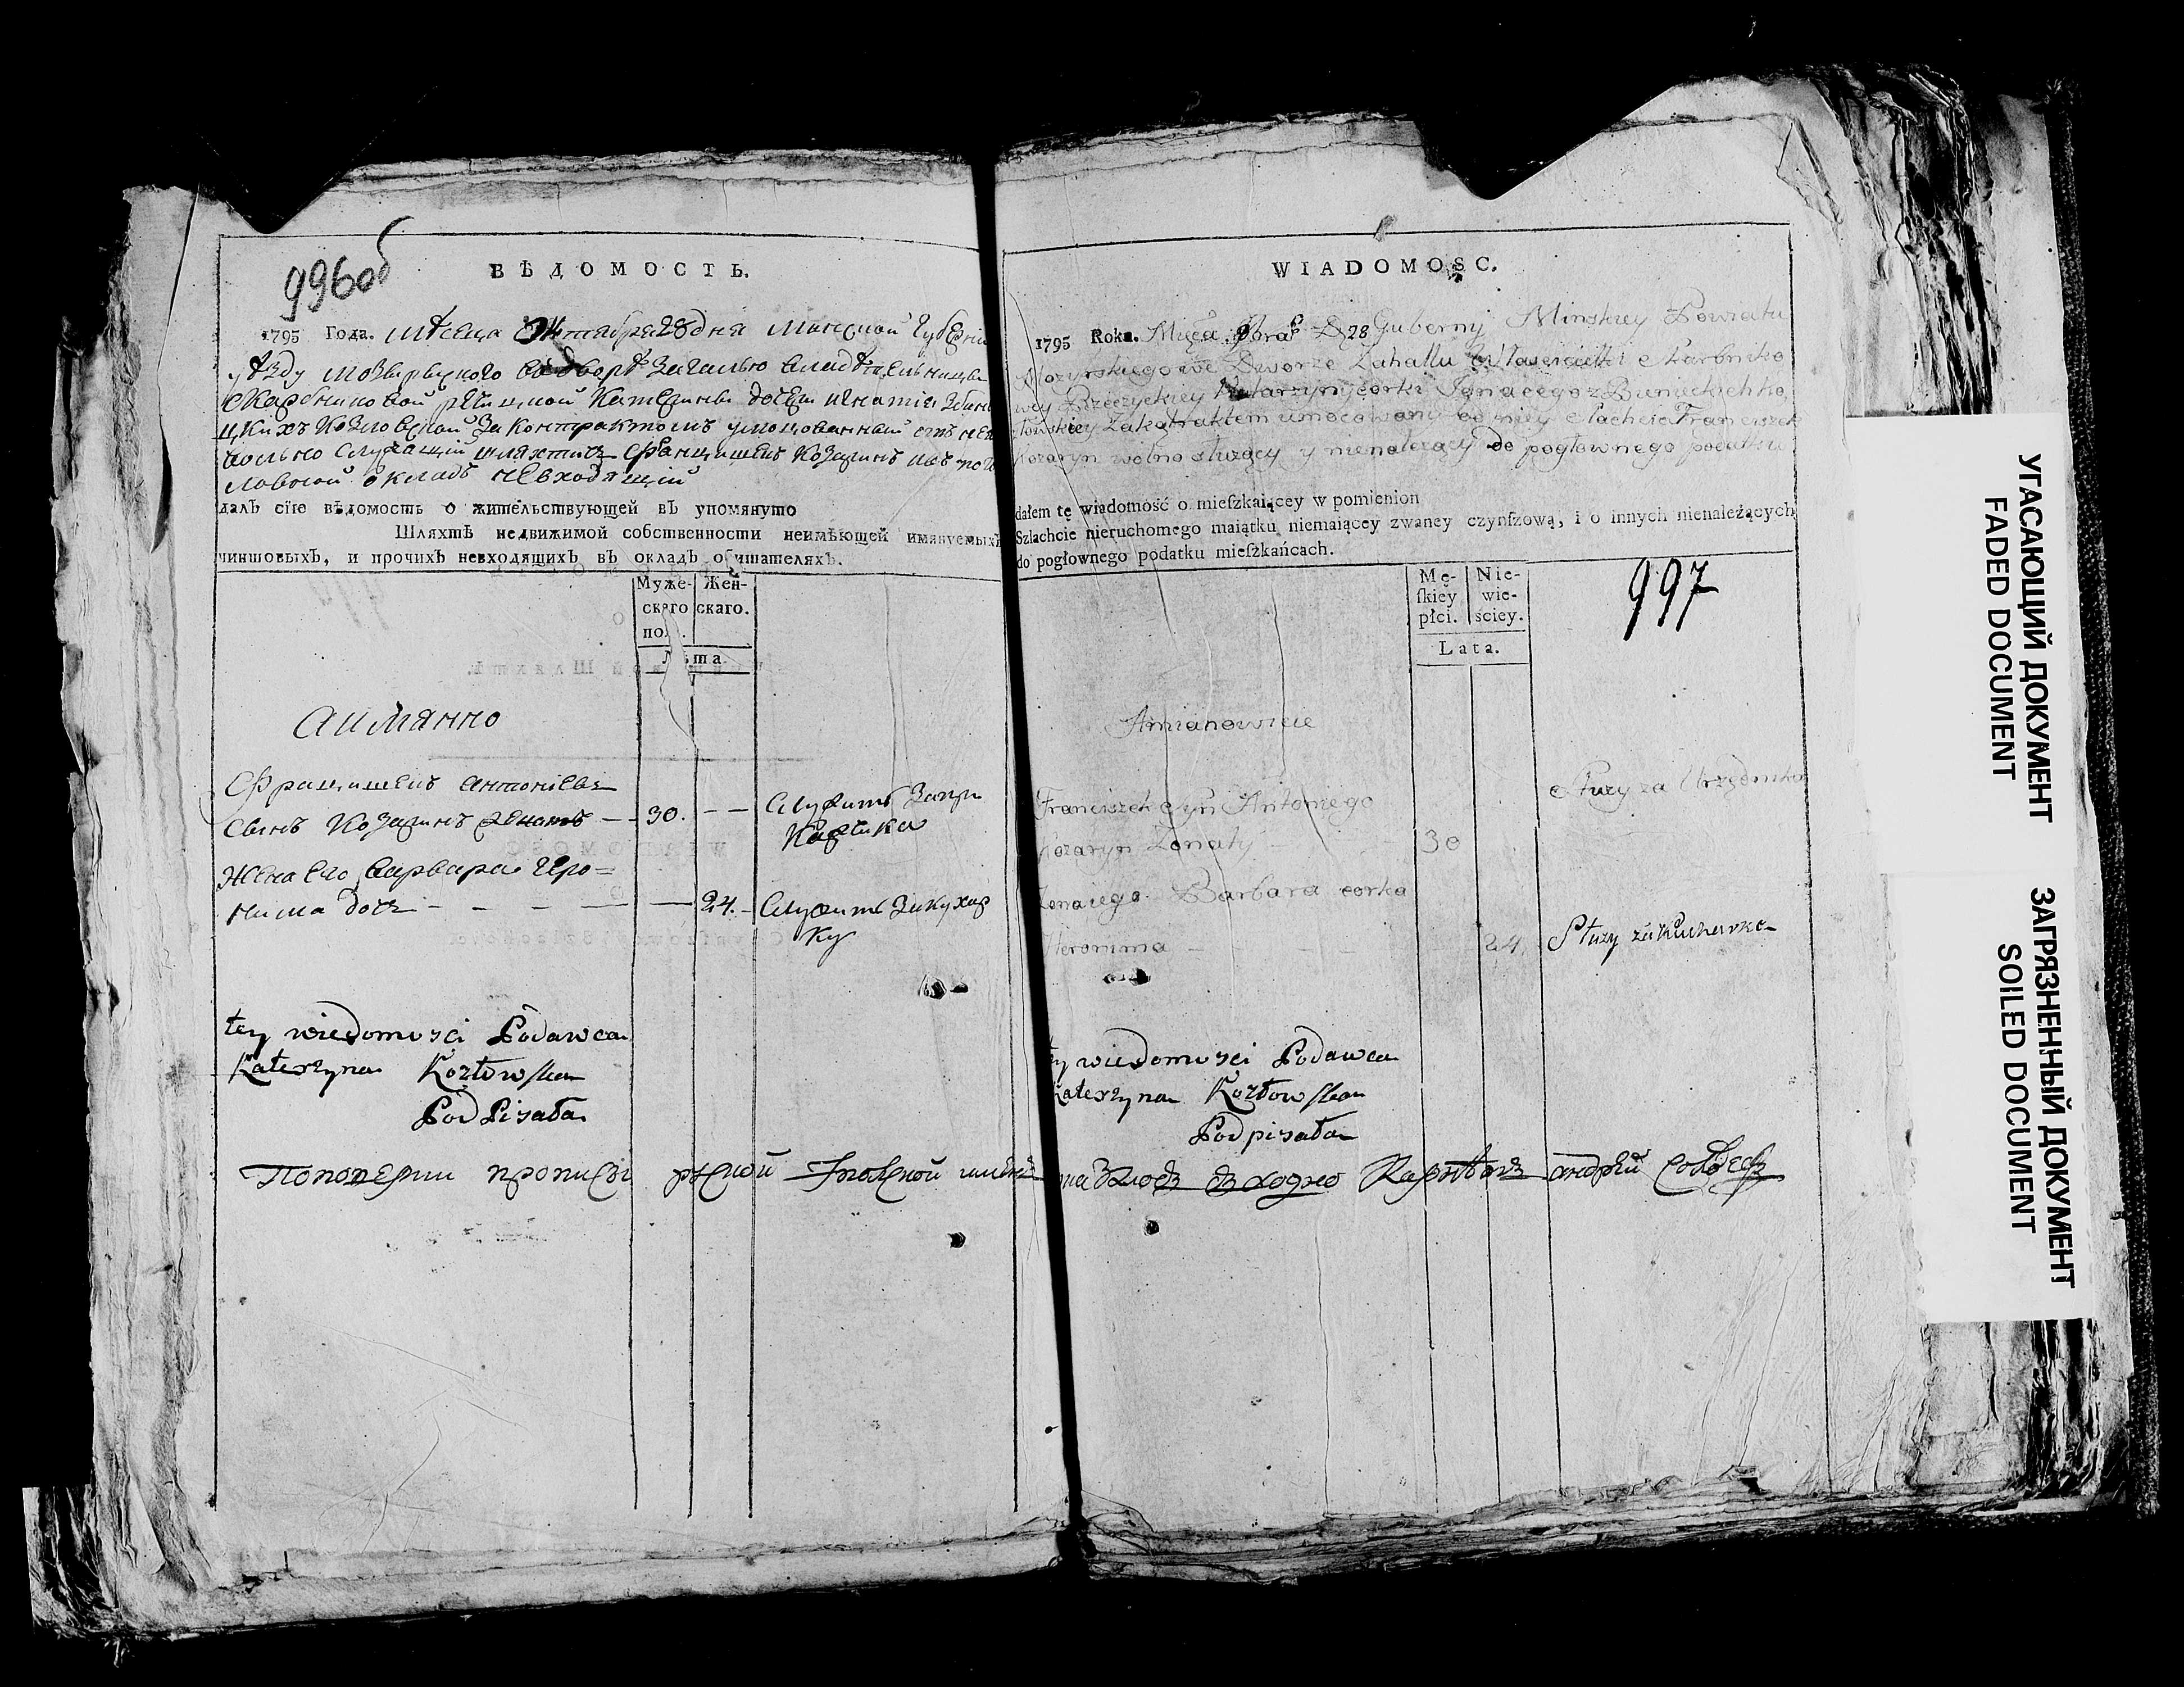 996об
ВѢДОМОСТЬ.
1795 Года. Мѣсеца Октября 28 дня Минской Губерніи
уѣзду Мозырского въ дворѣ Загалью владѣтельницы
Скарбниковой речицкой Катерины дочери игнатія
цкихъ Козловской За контрактомъ умоцованный
вольно Служащій шляхтичъ Францишекъ Козаринъ
ловной окладъ невходящій
далъ сїю вѣдомость о жительствующей въ упомянуто
Шляхтѣ недвижимой собственности неимѣющей имянуемыхъ
чиншовыхъ, и прочихъ невходящихъ въ окладъ обитателяхъ.
Муже- Жен-
скаго скаго.
пол.
Лѣта.
Аимянно
Францишекъ Антоніевъ
Сынъ Козаринъ женатъ — 30. — — Служитъ За
Жена Его Варвара Иеро=
нима дочь - - - — — 24. - Служитъ Закухар
ку
tey wiedomosci Podawca
Katerzyna Kozłowska
PodPisała
WIADOMOSC.
1795 Roka. Mięca 8bra D 28 Guberny Minskiey Powiatu
Mozyrskiego we Dworze Zahallu Skarbniko
wey Rzeczyckiey Katarzyny corki Ignacego z Bunieckich Ko
złowskiey Zakątraktem umocowany od niey Slachcic Franciszek
Kozaryn wolno służący y nienalezący do pogłownego podatku
dałem tę wiadomość o mieſzkaiącey w pomienion
Szlachcie nieruchomego maiątku niemaiącey zwaney czynſzową, i o innych nienależących
do pogłownego podatku mieſzkańcach.
Mę- Nie-
ſkiey wie-
płci. ściey.
Lata.
997
Amianowicie
Franciszek Syn Antoniego Służy za Urzędnika
Kozaryn Zonaty 30
Zona iego Barbara corka
Heronima — 24. Służy za Kucharkę
tey wiedomosci Podawca
Katerzyna Kozłowska
Podpisała
андрей
УГАСАЮЩИЙ ДОКУМЕНТ
FADED DOCUMENT
ЗАГРЯЗНЕННЫЙ ДОКУМЕНТ
SOILED DOCUMENT